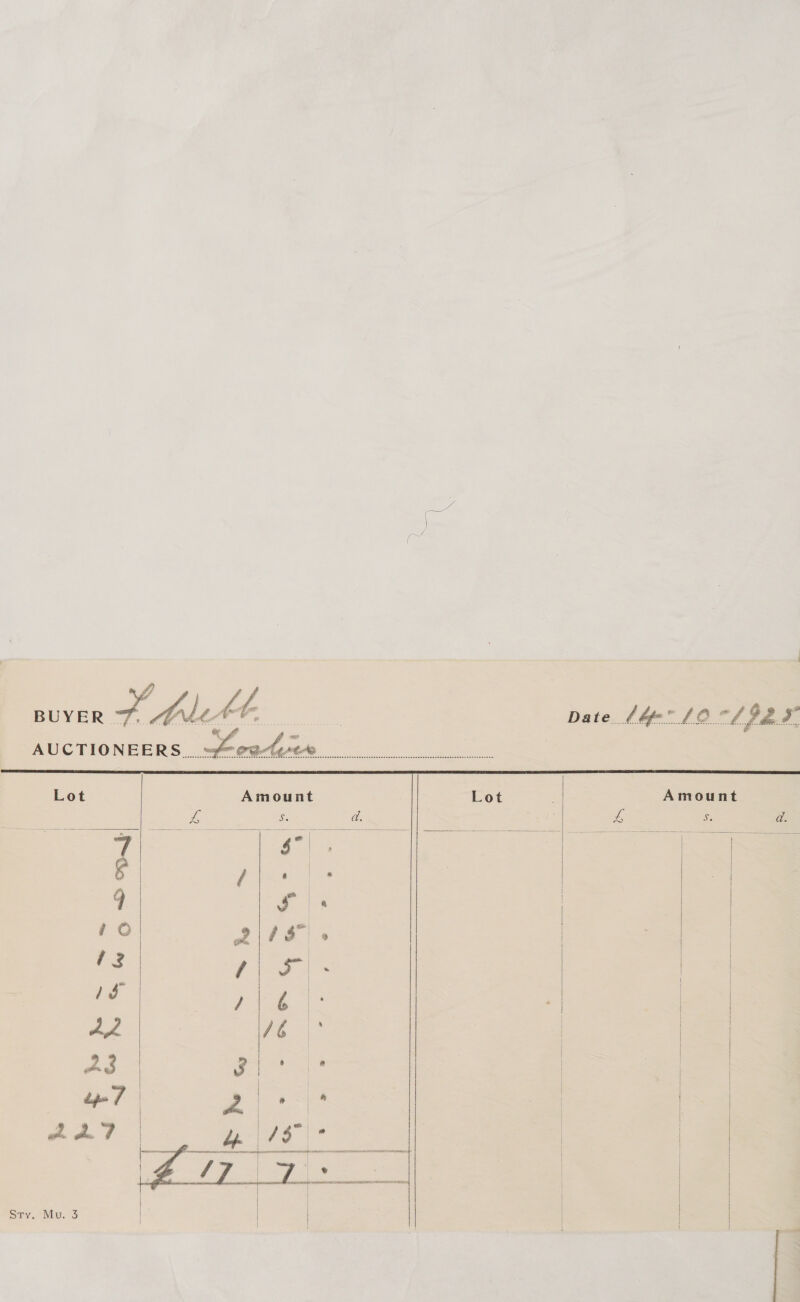 BUYER F.
Date 14-10-1925
AUCTIONEERS
Lot Amount Lot Amount
£ s. d. £ s. d.
7 5 .
8 1 . .
9 5 .
10 2 15 .
13 1 5 .
15 1 6 .
22 16 .
23 3 . .
47 2 . .
227 4 15 .
£ 17 7 .
Sty. Mu. 3